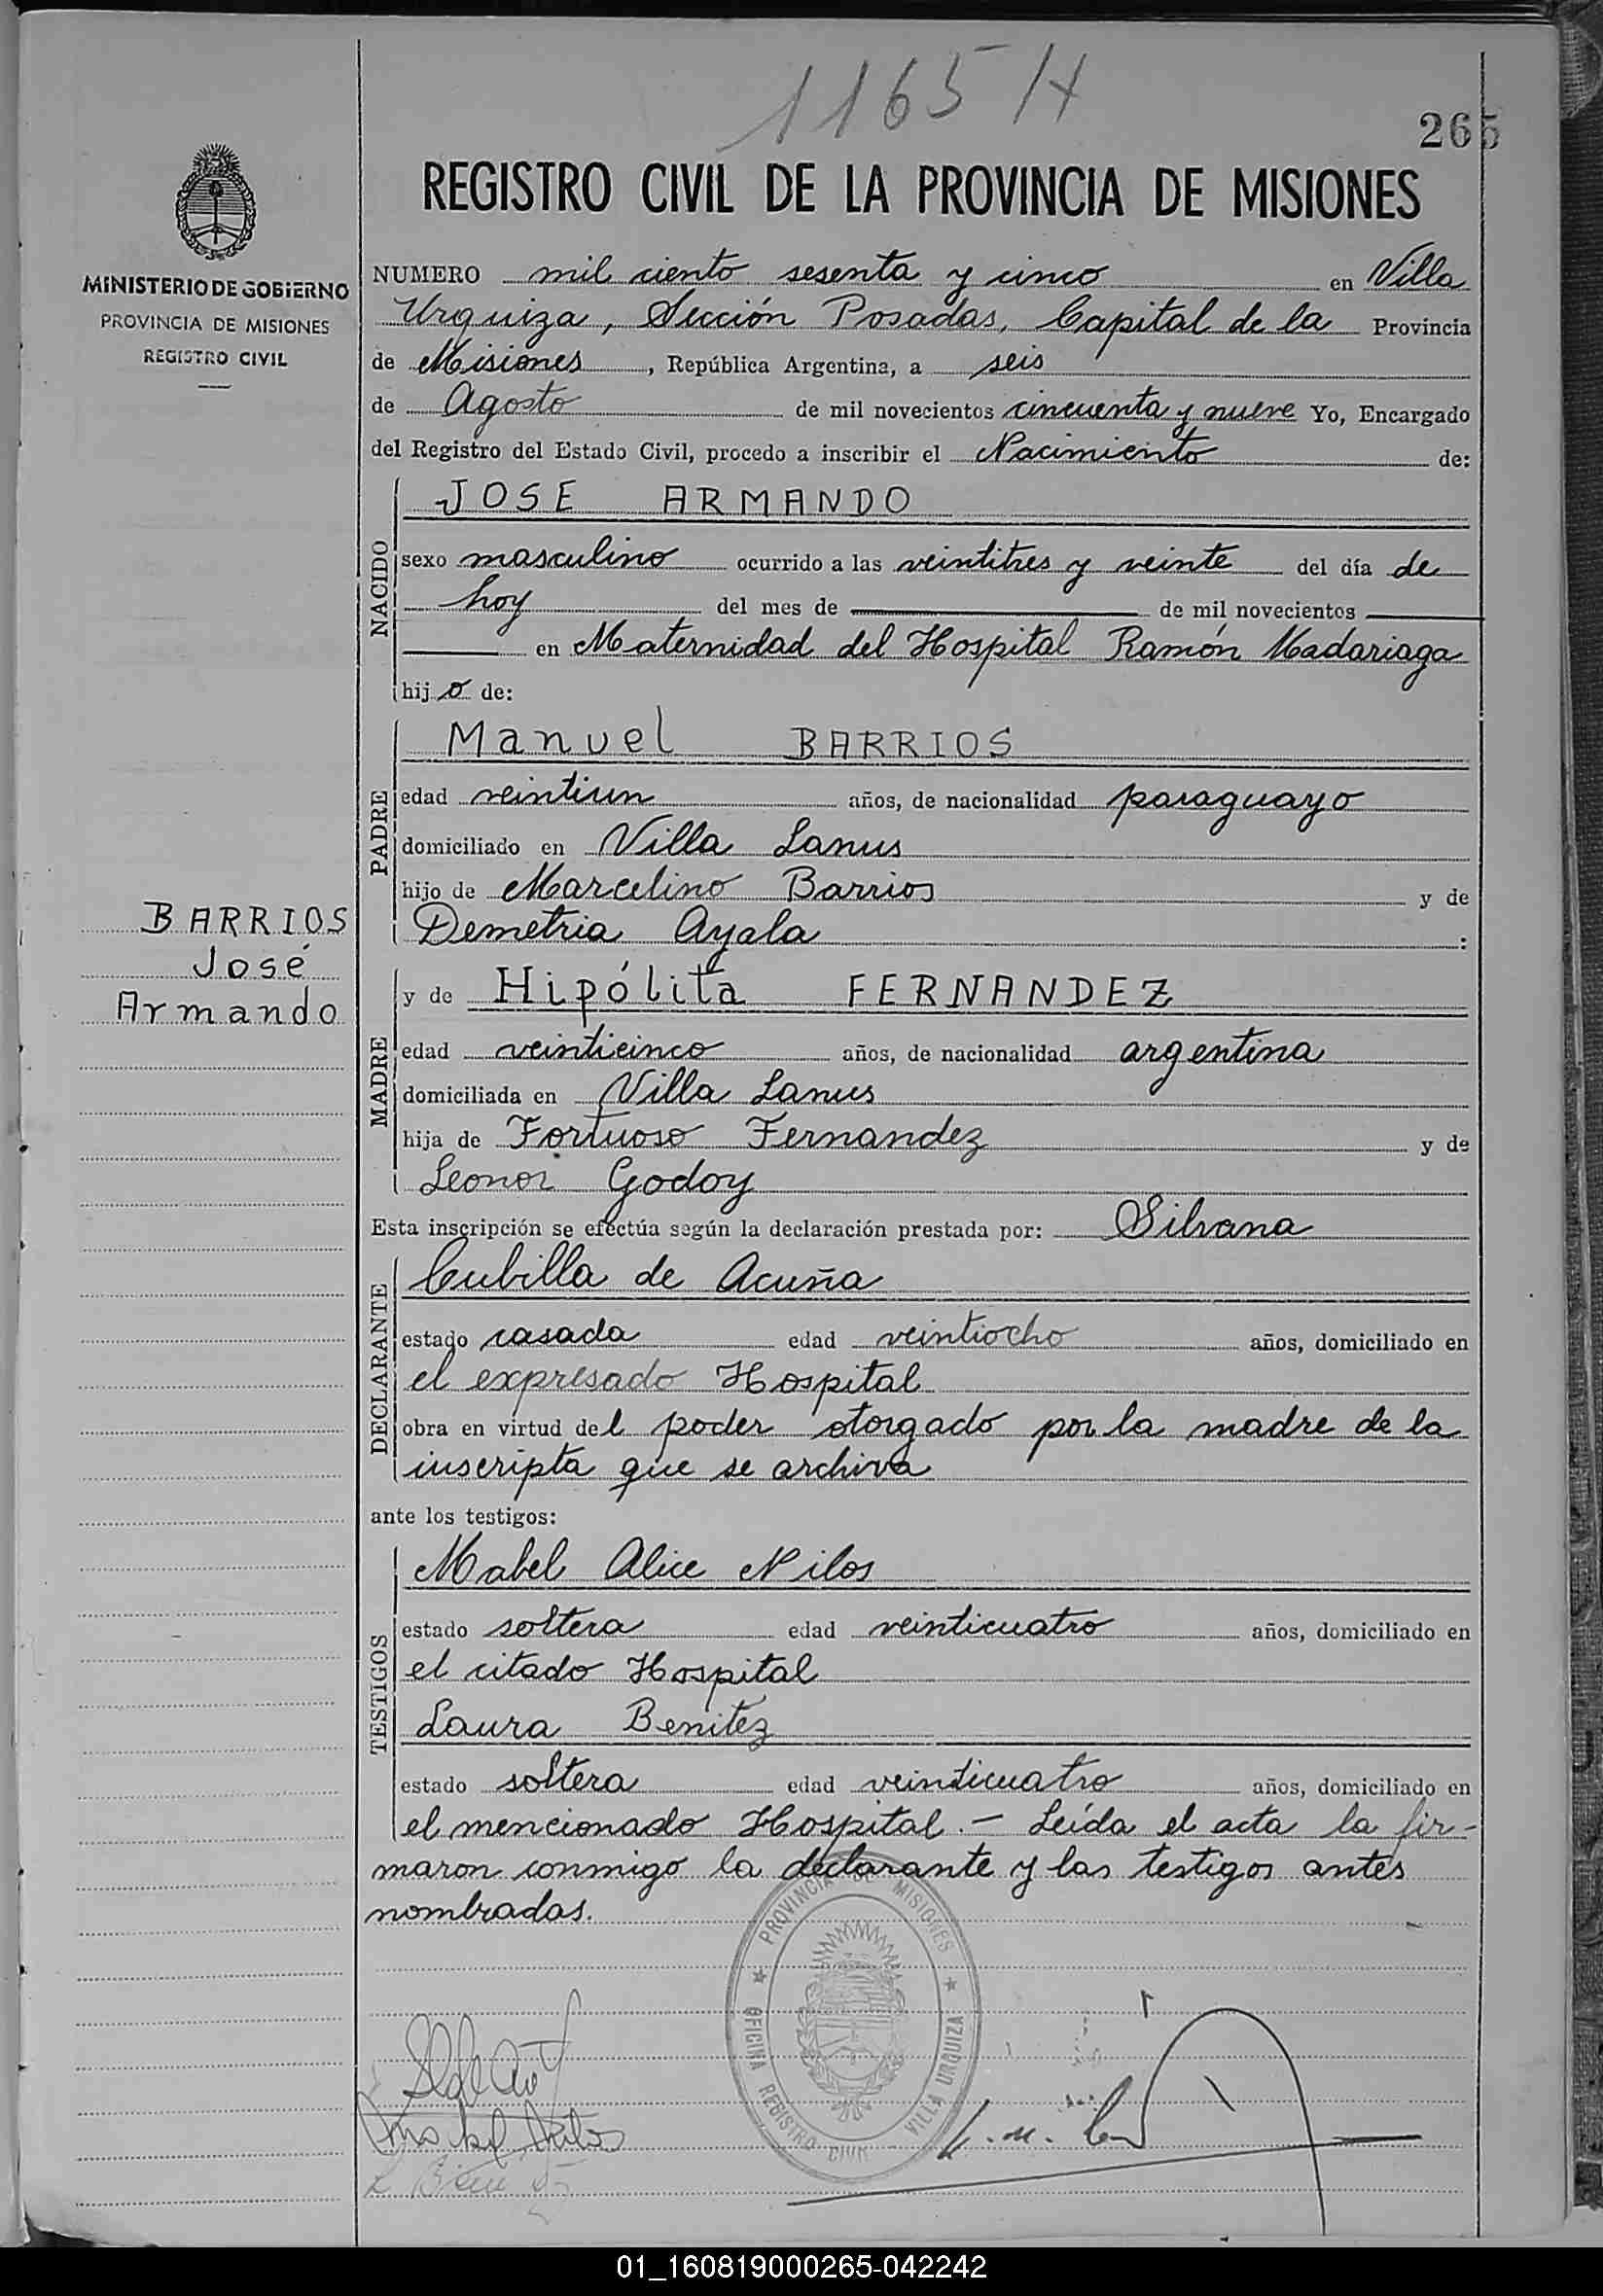 1165 H
265
REGISTRO CIVIL DE LA PROVINCIA DE MISIONES
MINISTERIO DE GOBIERNO
PROVINCIA DE MISIONES
REGISTRO CIVIL
NUMERO mil ciento sesenta y cinco en Villa
Urquiza, Sección Posadas, Capital de la Provincia
de Misiones, República Argentina, a seis
de Agosto de mil novecientos cincuenta y nueve Yo, Encargado
del Registro del Estado Civil, procedo a inscribir el Nacimiento de:
NACIDO
JOSE ARMANDO
sexo masculino ocurrido a las veintitres y veinte del día de
hoy del mes de de mil novecientos
en Maternidad del Hospital Ramón Madariaga
hijo de:
PADRE
Manuel BARRIOS
edad veintiun años, de nacionalidad paraguayo
domiciliado en Villa Lanus
hijo de Marcelino Barrios y de
Demetria Ayala :
BARRIOS
José
Armando
MADRE
y de Hipólita FERNANDEZ
edad veinticinco años, de nacionalidad argentina
domiciliada en Villa Lanus
hija de Fortuoso Fernandez y de
Leonor Godoy
Esta inscripción se efectúa según la declaración prestada por: Silvana
DECLARANTE
Cubilla de Acuña
estado casada edad veintiocho años, domiciliado en
el expresado Hospital
obra en virtud del poder otorgado por la madre de la
inscripta que se archiva
ante los testigos:
TESTIGOS
Mabel Alice Nilos
estado soltera edad veinticuatro años, domiciliado en
el citado Hospital
Laura Benitez
estado soltera edad veinticuatro años, domiciliado en
el mencionado Hospital.- Leída el acta la fir-
maron conmigo la declarante y las testigos antes
nombradas.
PROVINCIA DE MISIONES
OFICINA REGISTRO CIVIL - VILLA URQUIZA
01_160819000265-042242